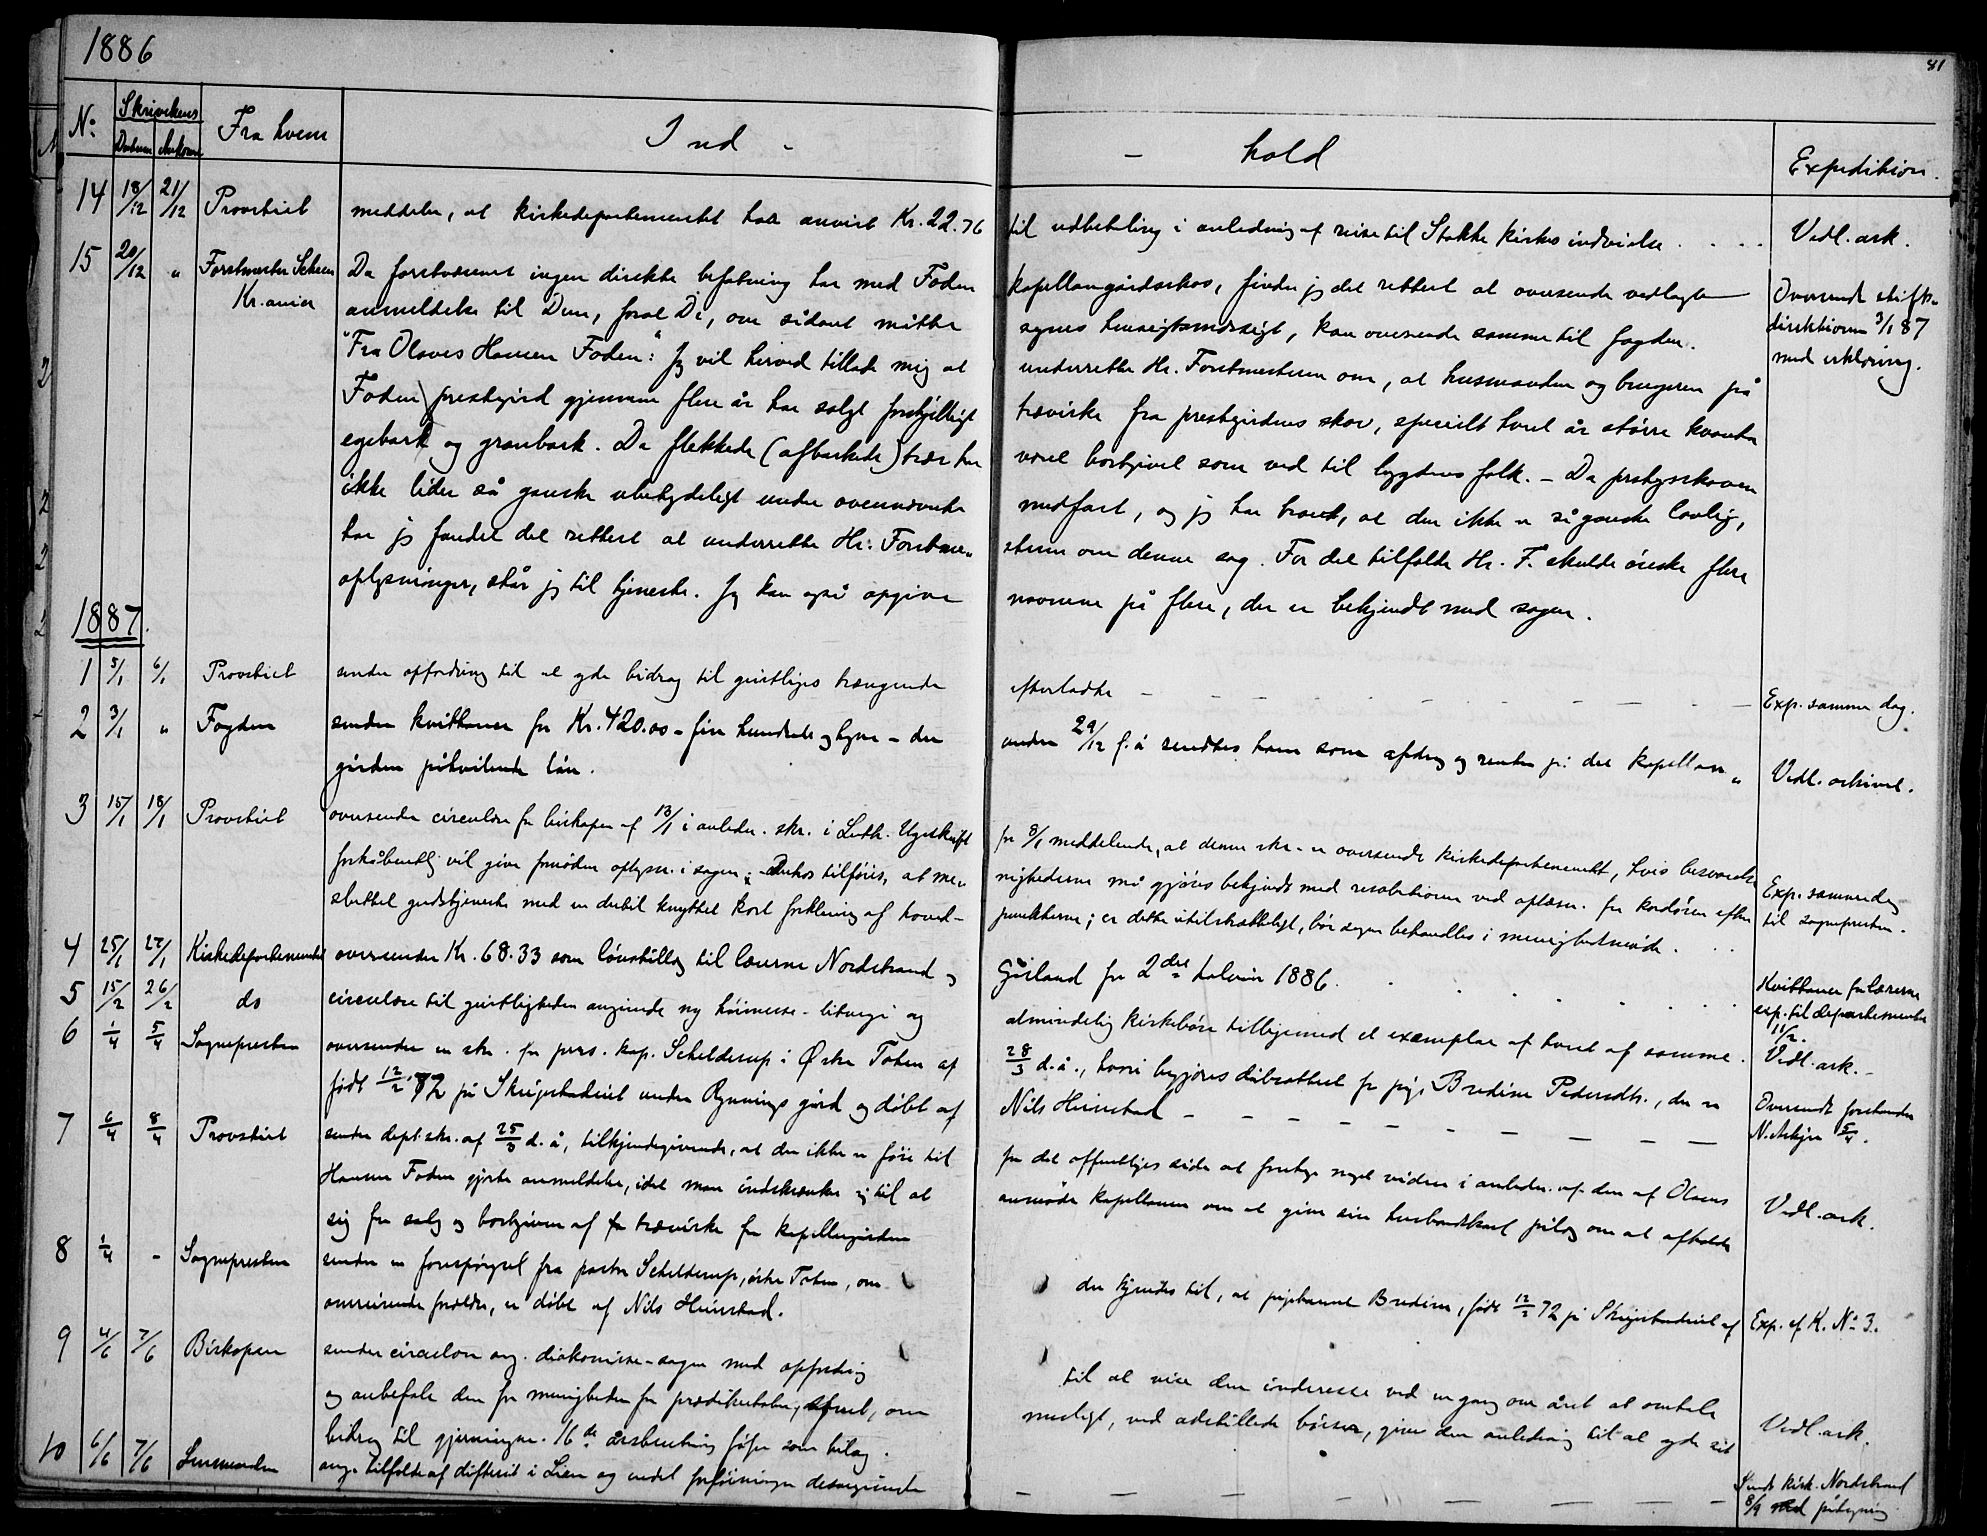 1886
81
No. Skrivelsens Fra hvem Ind - - hold Expedition.
Datum Ankomst
14 18/12 21/12 Provstiet meddeler, at kirkedepartementet har anvist Kr. 22.76 til udbetaling i anledning af reise til Stokke kirkes indvielse . . . . Vedl. ark.
15 20/12 " Forstmester Scheen Da forstvæsenet ingen direkte befatning har med Foden kapellangårdsskov, finder jeg det rettest at oversende vedlagte Oversendt stifts-
Kr.ania anmeldelse til Dem, forat De, om sådant måtte synes hensigtsmæssigt, kan oversende samme til fogden. direktionen 3/1 87
"Fra Olaves Hansen Foden: Jeg vil herved tillade mig at underrette Hr. Forstmesteren om, at husmanden og brugeren på med erklæring.
Foden prestegård gjennem flere år har solgt forskjelligt trævirke fra prestegårdens skov, specielt hvert år større kvanta
egebark og granbark. De flekkede (afbarkede) træer har været bortgivet som ved til bygdens folk. - Da prestegsskoven
ikke lider så ganske ubetydeligt under ovennævnte medfart, og jeg har troet, at den ikke er så ganske lovlig,
har jeg fundet det rettest at underrette Hr. Forstme- steren om denne sag. For det tilfælde Hr. F. skulde ønske flere
oplysninger, står jeg til tjeneste. Jeg kan også opgive navnene på flere, der er bekjendt med sagen.
1887.
1 5/1 6/1 Provstiet sender opfordring til at yde bidrag til geistliges trængende efterladte - - - - - Exp. samme dag.
2 3/1 " Fogden sender kvittance for Kr. 420.00 - fire hundrede og tyve - der under 29/12 f.å. sendtes ham som afdrag og renter på det kapellan- Vedl. arkivet.
gården påhvilende lån.
3 15/1 18/1 Provstiet oversender circulære fra biskopen af 13/1 i anledn. skr. i Luth. Ugeskrift for 8/1 meddelende, at denne skr. er oversendt kirkedepartementet, hvis besvarelse
forhåbentlig vil give fornøden oplysn. i sagen; tilføies, at me- nighederne må gjøres bekjendt med resolutionen ved oplæsn. fra kordøren efter Exp. sammedag
sluttet gudstjeneste med en dertil knyttet kort forklaring af hoved- punkterne; er dette utilstrækkeligt, bør sagen behandles i menighedsmøde. . . til sognepresten.
4 25/1 27/1 Kirkedepartementet oversender Kr. 68.33 som lønstillæg til lærerne Nordstrand og Gåsland for 2det halvår 1886. Kvittancer fra lærerne
exp. til departementet
11/2.
5 15/2 26/2 do circulære til geistligheden angående ny høimesse-liturgi og almindelig kirkebøn tilligemed et exemplar af hvert af samme. Vedl. ark.
6 1/4 5/4 Sognepresten oversender en skr. fra pers. kap. Schelderup i Østre Toten af 28/3 d.å., hvori begjæres dåbsattest for pige Bredine Pedersdtr., der er Oversendt forstander
født 12/2 72 på Skrujestadeiet under Rynnings gård og døbt af Nils Heinstad - - - - - - N. Askjær 5/4.
7 6/4 8/4 Provstiet sender dept. skr. af 25/3 d.å., tilkjendegivende, at der ikke er føie til fra det offentliges side at foretage noget videre i anledn. af den af Olaves
Hansen Foden gjorte anmeldelse, idet man indskrænker sig til at anmode kapellanen om at give sin husbandskarl pålæg om at afholde Vedl. ark.
sig fra salg og bortgiven af trævirke fra kapellangården
8 1/4 - Sognepresten sender en forespørgsel fra pastor Schelderup, østre Toten, om der kjendes til, at pigebarnet Bredine, født 12/2 72 på Skrujestadeiet af Exp. ef K. No 3.
omreisende forældre, er døbt af Nils Heinstad.
9 4/6 7/6 Biskopen sender circulære ang. diakonisse-sagen med opfordring til at vise den interesse ved en gang om året at omtale
og anbefale den for menigheden fra prædikestolen, samt, om muligt, ved udstillede bøsser, give den anledning til at yde sit Vedl. ark.
bidrag til gjerningen. 16de årsberetning følger som bilag.
10 6/6 7/6 Lensmanden ang. tilfælde af difterit i Lien og endel forføininger desangående - - - - - Sendt kirk. Nordstrand
8/9 påtegning